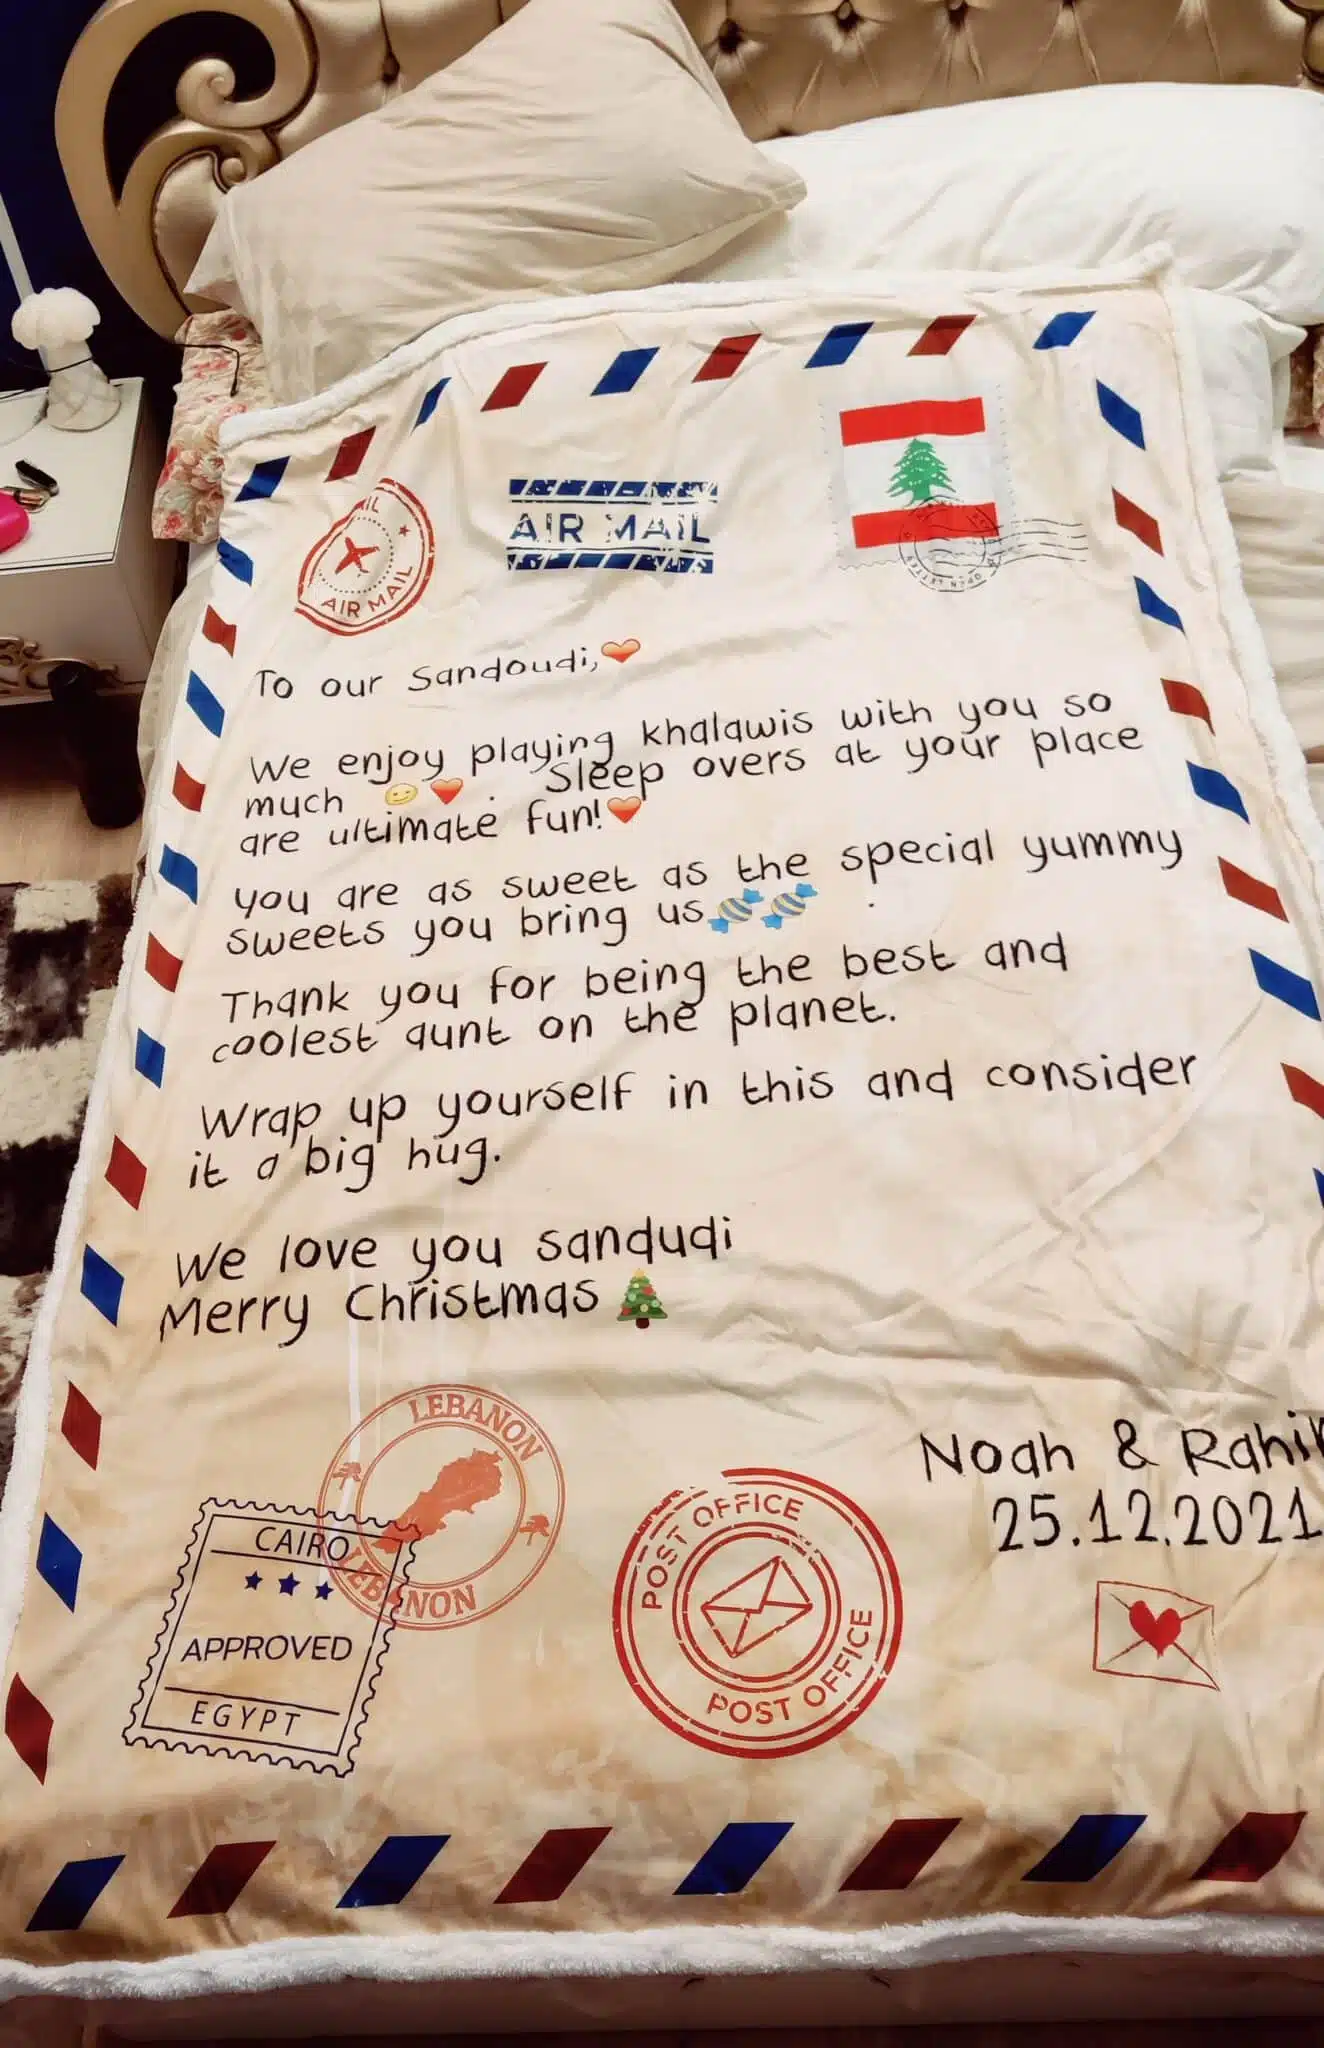 AIR MAIL
AIR MAIL
To our Sandoudi,❤️
We enjoy playing khalawis with you so
much 🙂❤️. Sleep overs at your place
are ultimate fun!❤️
You are as sweet as the special yummy
sweets you bring us🍬🍬.
Thank you for being the best and
coolest aunt on the planet.
Wrap up yourself in this and consider
it a big hug.
We love you sandudi
Merry Christmas🎄
Noah &
25.12.2021
LEBANON
LEBANON
CAIRO
APPROVED
EGYPT
POST OFFICE
POST OFFICE